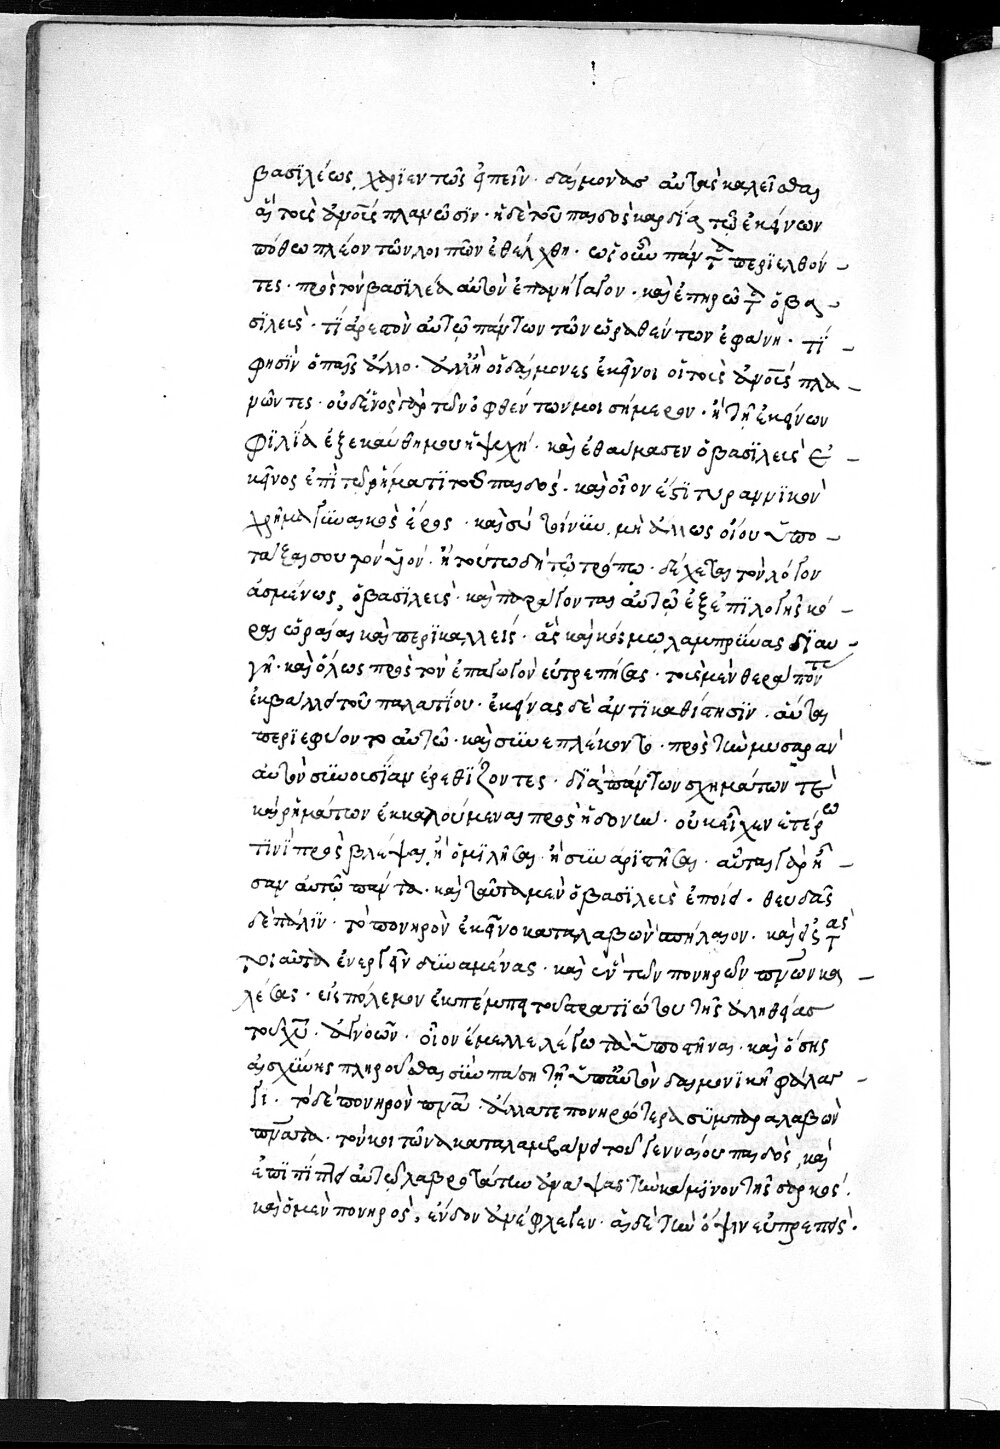 βασϊλέως χαρϊεντῶς εἰπεῖν· δαίμονας αὐτὰς καλεῖσθαι
αἳ τοὺς ἀνο̅υς πλανῶσϊν· ἡ δὲ τοῦ παιδὸς καρδία τῶ ἐκείνων
πόθω πλέον τῶν λοιπῶν ἐθέλχθη· ὡς οὖν πάντα περϊελθόν
τες· πρὸς τὸν βασϊλέα αὐτὸν ἐπανήγαγον· καὶ ἐπηρώτα ὁ βα
σϊλεὺς· τί ἀρεστὸν αὐτῶ πάντων τῶν ὁραθέντων ἐφάνη· τί
φησϊν ὁ παῖς ἄλλο· ἀλλ' ἢ οἱ δαίμονες ἐκεῖνοι οἱ τοὺς ἀνο̅υς πλα
νῶντες· οὐδενὸς γὰρ τῶν ὀφθέντων μοι σήμερον· ἢ τῆ ἐκείνων
φϊλία ἐξεκαύθη μου ἡ ψυχή· καὶ ἐθαύμασεν ὁ βασϊλεὺς ἐ
κεῖνος ἐπὶ τῶ ῥήματϊ τοῦ παιδὸς· καὶ οἷον ἐστϊ τυραννϊκὸν
χρῆμα γϋναικὸς ἔρως· καὶ σὺ τοίνϋν μὴ ἄλλως οἴου ὑπο
τάξαι σου τὸν υἱόν· ἢ τούτω δὴ τῶ τρόπω· δέχεται τὸν λόγον
ἀσμένως ὁ βασϊλεὺς· καὶ παράγονται αὐτῶ ἐξ ἐπϊλογῆς κό
ραι ὡραίαι καὶ περϊκαλλεῖς· ἃς καὶ κόσμω λαμπρϋνας δϊαυ
γῆ· καὶ ὅλως πρὸς τὸν ἐπαγωγὸν εὐτρεπήσας· τοὺς μὲν θεράποντας
ἐκβάλλει τοῦ παλατίου· ἐκείνας δὲ ἀντϊκαθίστησϊν· αὗται
περϊεφύοντο αὐτῶ· καὶ σϋνεπλέκοντο· πρὸς τὴν μυσαρὰν
αὐτὸν σϋνουσϊαν ἐρεθϊζοντες· δϊὰ πάντων σχημάτων τὲ
καὶ ῥημάτων ἐκκαλούμεναι πρὸς ἡδονὴν· οὐκ εἶχεν ἑτέρω
τϊνϊ προσβλέψαι ἢ ὁμϊλῆσαι· ἢ σϋναρϊστῆσαι· αὗται γὰρ ἦ
σαν αὐτῶ πάντα· καὶ ταῦτα μὲν ὁ βασϊλεὺς ἐποίει· θευδᾶς
δὲ πάλϊν· τὸ πονηρὸν ἐκεῖνο καταλαβὼν σπήλαιον· καὶ εἰς τὰς
οι αῦτα ἐνεργεῖν δϋναμένας· καὶ ἓν τῶν πονηρῶν πν̅ων κα
λέσας· εἰς πόλεμον ἐκπέμπει τοῦ στρατϊώτου τῆς ἀληθείας
τοῦ χῦ· ἀγνοῶν· οἷον ἔμελλε λέγω τὰ ὑποστῆναι· καὶ ὅσης
αἰσχϋνης πληροῦσθαι σϋν πάση τῆ ὑπ' αὐτὸν δαιμονϊκῆ φάλαγ
γι· τὸ δὲ πονηρὸν πν̅α· ἄλλα τε πονηρότερα σϋμπαραλαβὼν
πν̅ατα· τὸν κοιτῶνα καταλαμβάνει τοῦ γενναίου παιδὸς, καὶ
ἐπϊπίπτει αὐτῶ λαβροτάτην ἀνάψας τὴν κάμϊνον τῆς σαρκός·
καὶ ὁ μὲν πονηρὸς, ἔνδον ἀνέφλεγεν· αἱ δὲ τὴν ὄψιν εὐπρεπεῖς·